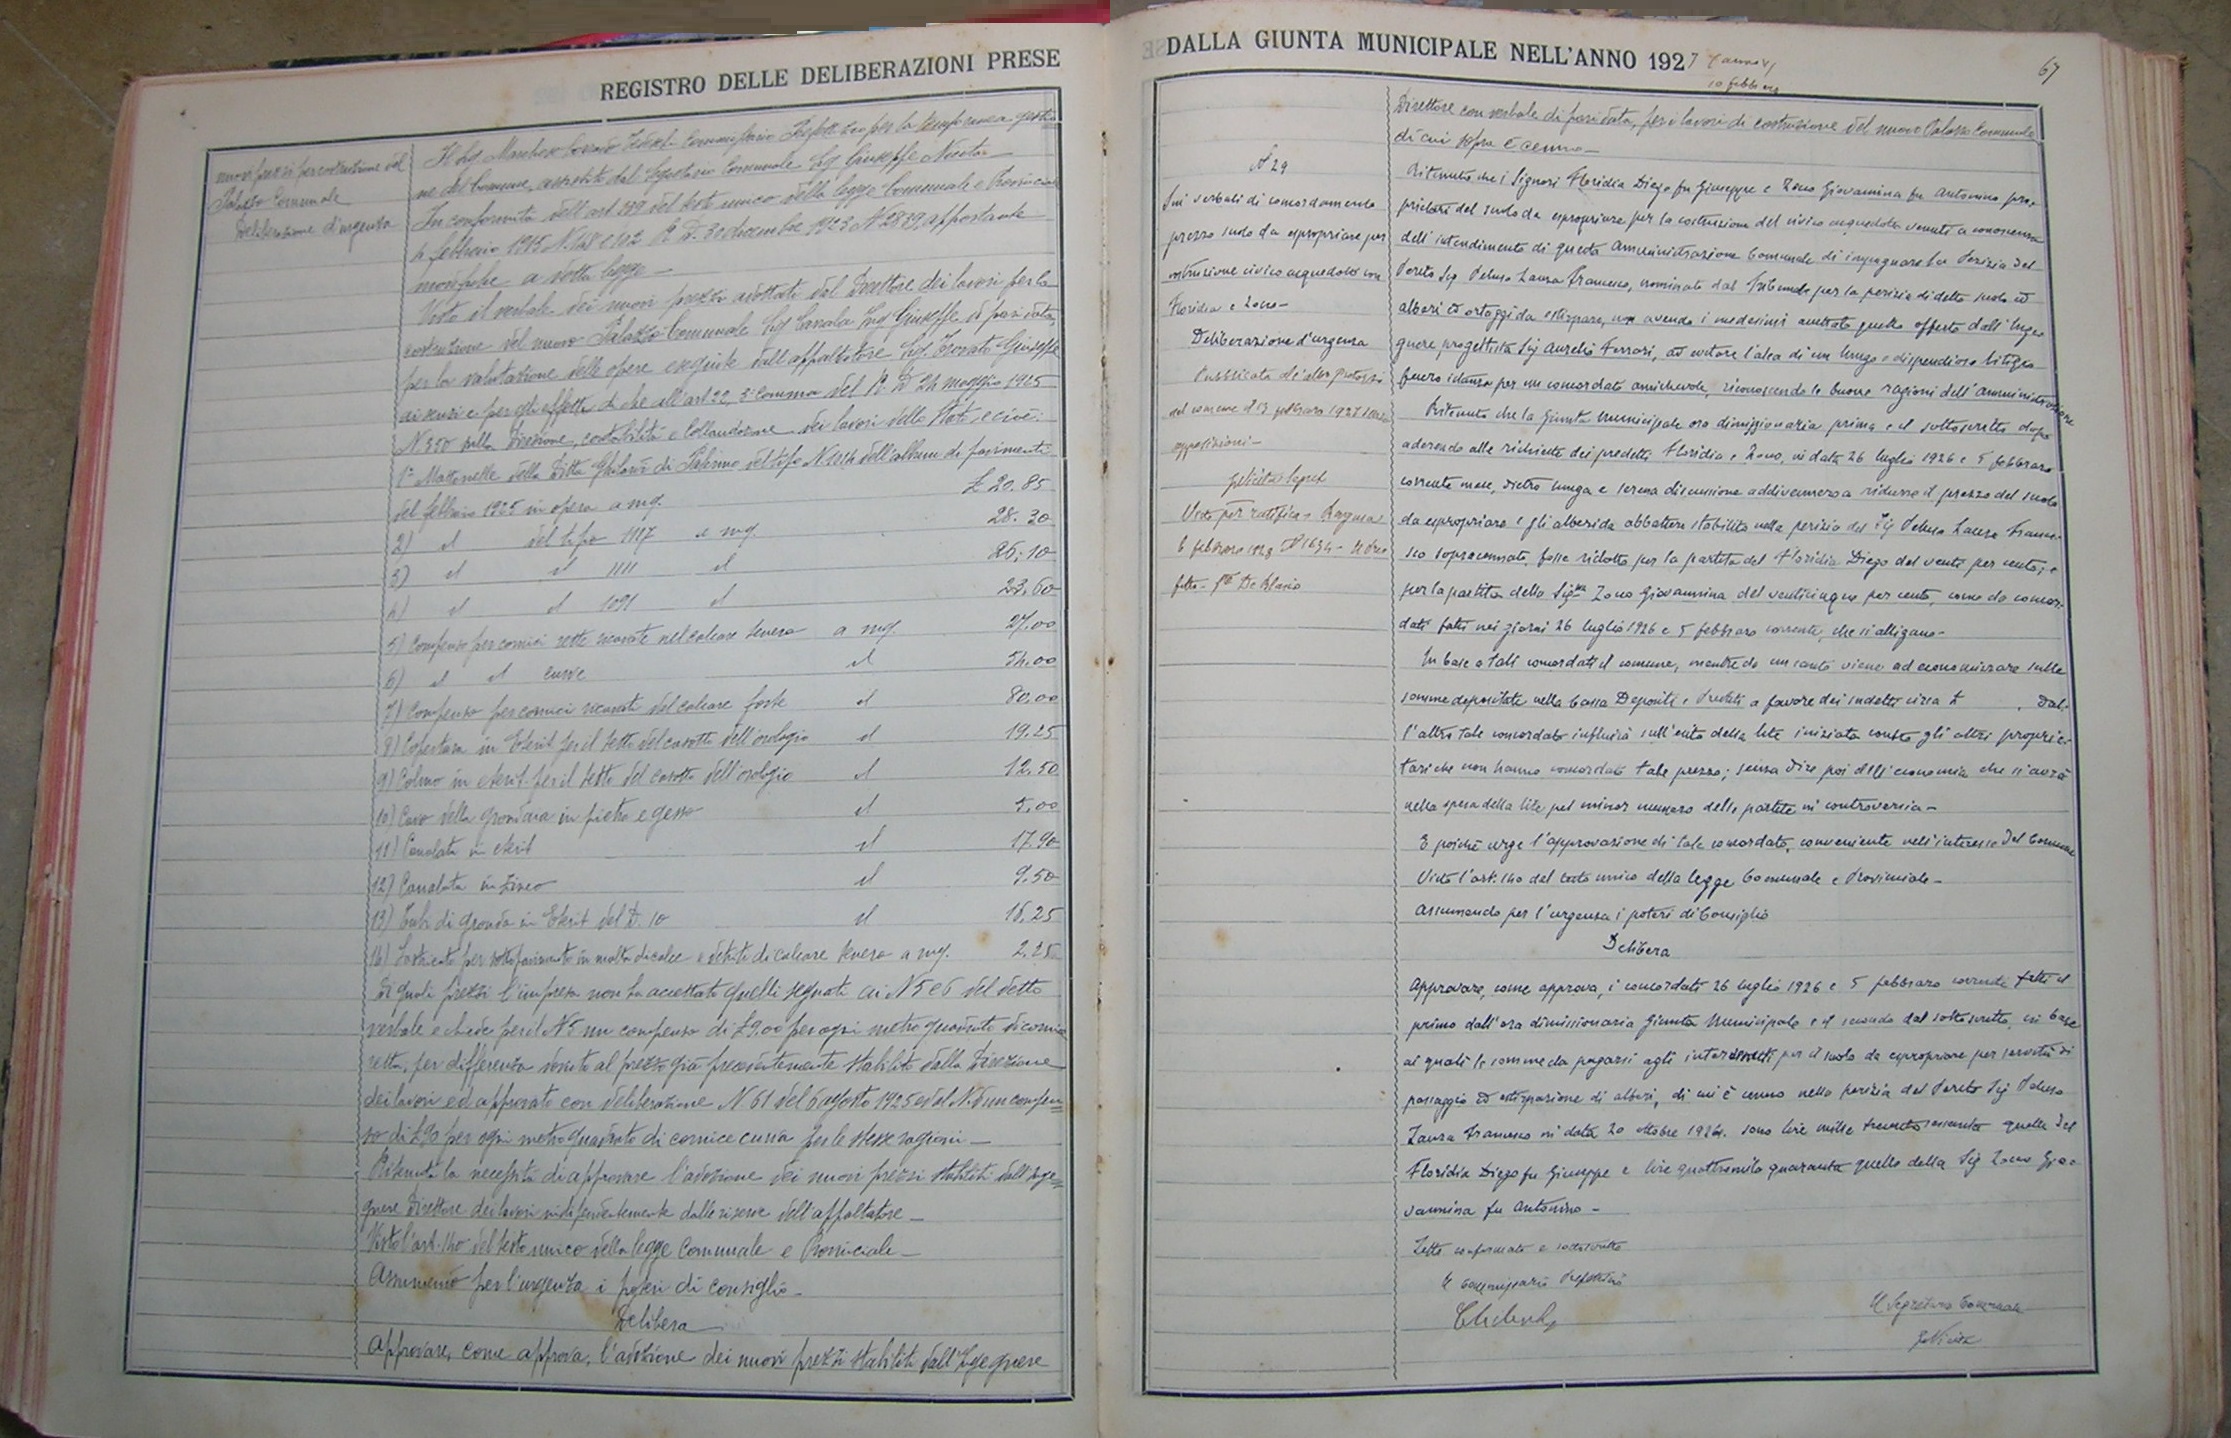 REGISTRO DELLE DELIBERAZIONI PRESE
nuovi prezzi per costruzione del
Palazzo Comunale
Deliberazione d'urgenza
Il Sig. Marchese Corrado Commissario Prefettizio per la temporanea gestio
ne del Comune, assistito dal Segretario Comunale Sig. Giuseppe
In conformità dell'art. del testo unico della legge Comunale e Provinciale
4 febbraio 1915 N. 148 e 102 R. D. 30 dicembre 1923 N 2839 apportante
modifiche a detta legge —
Visto il verbale dei nuovi prezzi adottati dal Direttore dei lavori per la
costruzione del nuovo Palazzo Comunale Sig. Ing. Giuseppe di pari data,
per la valutazione delle opere eseguite dall'appaltatore Sig. Trovato Giuseppe
ai sensi e per gli effetti di che all'art 22, 3° comma del R. D 24 maggio 1925
N 350 sulla Direzione, contabilità e Collaudazione dei lavori dello Stato, e cioè:
1° Mattonelle della Ditta di Palermo del tipo N. dell'album di pavimenti
del febbraio 1925 in opera a mq. £ 20.85
2) id del tipo 1117 a mq. 28.30
3) id id 1111 id 26.10
4) id id 1091 id 23.60
5) Compenso per cornici rette ricavate nel calcare tenero a mq. 27.00
6) id id curve id 54.00
7) Compenso per cornici ricavati del calcare forte id 80.00
8) Copertura in Eternit per il tetto del casotto dell'orologio id 19.25
9) Colmo in eternit per il tetto del casotto dell'orologio id 12.50
10) Cavo della grondaia in pietra e gesso id 5.00
11) Canalata in eternit id 17.90
12) Canalata in zinco id 9.50
13) Tubi di gronda in Eternit del D. 10 id 16.25
14) Lastricato per sottopavimento in malta di calce e detriti di calcare tenero a mq. 2.25
Dei quali prezzi l'impresa non ha accettato quelli segnati ai N 5 e 6 del detto
verbale e chiede per il N 5 un compenso di £ 9,00 per ogni metro quadrato di cornice
retta, per differenza dovuta al prezzo già precedentemente stabilito dalla Direzione
dei lavori ed approvato con deliberazione N 61 del 6 agosto 1925 ed al N. 6 un compen=
so di £ 90 per ogni metro quadrato di cornice curva per le stesse ragioni —
Ritenuta la necessità di approvare l'adozione dei nuovi prezzi stabiliti dall'Inge=
gnere Direttore dei lavori indipendentemente dalle riserve dell'appaltatore —
Visto l'art. 140 del testo unico della legge Comunale e Provinciale —
Assumendo per l'urgenza i poteri di consiglio —
Delibera
Approvare, come approva, l'adozione dei nuovi prezzi stabiliti dall'Ingegnere
DALLA GIUNTA MUNICIPALE NELL'ANNO 1927
10 febbraio
67
Direttore con verbale di pari data, per i lavori di costruzione del nuovo Palazzo Comunale
di cui sopra è cenno —
N 29
Sui verbali di concordamento
prezzo suolo da espropriare per
costruzione civico acquedotto con
Floridia e Zocco —
Deliberazione d'urgenza
Pubblicata all'albo pretorio
del comune il 13 febbraio 1927 senza
opposizioni —
Visto per ratifica — Ragusa
N 1634 — Il Pre
fetto — De Blasio
Ritenuto che i Signori Floridia Diego fu Giuseppe e Zocco Giovannina fu Antonino, pro=
prietari del suolo da espropriare per la costruzione del civico acquedotto venuti a conoscenza
dell'intendimento di questa Amministrazione Comunale di impugnare la Perizia del
Perito Sig. Peluso Lauza Francesco, nominato dal Tribunale per la perizia di detto suolo ed
alberi ed ortaggi da estirpare, non avendo i medesimi accettato quella offerta dall'Inge
gnere progettista Sig Aurelio Ferrari, ad evitare l'alea di un lungo e dispendioso litigio
fecero istanza per un concordato amichevole, riconoscendo le buone ragioni dell'amministrazione
Ritenuto che la Giunta Municipale ora dimissionaria prima e il sottoscritto dopo
aderendo alle richieste dei predetti Floridia e Zocco, in data 26 luglio 1926 e 5 febbraro
corrente mese, dietro lunga e serena discussione addivennero a ridurre il prezzo del suolo
da espropriare e gli alberi da abbattere stabilito nella perizia del Sig Peluso Lauza France=
sco sopracennato, fosse ridotto per la partita del Floridia Diego del venti per cento; e
per la partita della Sig.ra Zocco Giovannina del venticinque per cento, come da concor=
dati fatti nei giorni 26 luglio 1926 e 5 febbraro corrente, che si alligano —
In base a tali concordati il comune, mentre da un canto viene ad economizzare sulle
somme depositate nella Cassa Depositi e Prestiti a favore dei sudetti circa £ , dal=
l'altro tale concordato influirà sull'esito della lite iniziata contro gli altri proprie=
tari che non hanno concordato tale prezzo; senza dire poi dell'economia che si avrà
nella spesa della lite pel minor numero delle partite in controversia —
E poichè urge l'approvazione di tale concordato, conveniente nell'interesse del Comune
Visto l'art. 140 del testo unico della legge Comunale e Provinciale —
Assumendo per l'urgenza i poteri di Consiglio
Delibera
Approvare, come approva, i concordati 26 luglio 1926 e 5 febbraro corrente fatti il
primo dall'ora dimissionaria Giunta Municipale e il secondo dal sottoscritto, in base
ai quali le somme da pagarsi agli interessati per il suolo da espropriare per servitù di
passaggio ed estirpazione di alberi, di cui è cenno nella perizia del Perito Sig Peluso
Lauza Francesco in data 20 ottobre 1924. sono lire mille trecentosessanta quella del
Floridia Diego fu Giuseppe e lire quattromila quaranta quella della Sig Zocco Gio=
vannina fu Antonino —
Letto confermato e sottoscritto
Il Commissario Prefettizio
Il Segretario Comunale